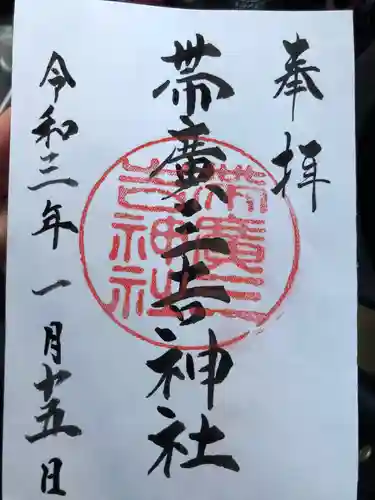 奉拝
帯廣三吉神社
帯廣三
吉神社
令和三年一月十五日